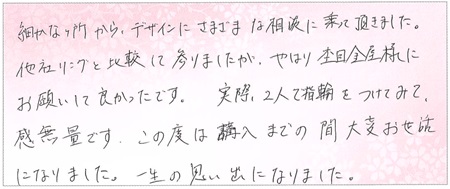 細かな所から、デザインにさまざまな相談に乗って頂きました。
他社リングと比較して参りましたが、やはり杢目金屋様に
お願いして良かったです。 実際、2人で指輪をつけてみて、
感無量です。この度は購入までの間大変お世話
になりました。一生の思い出になりました。